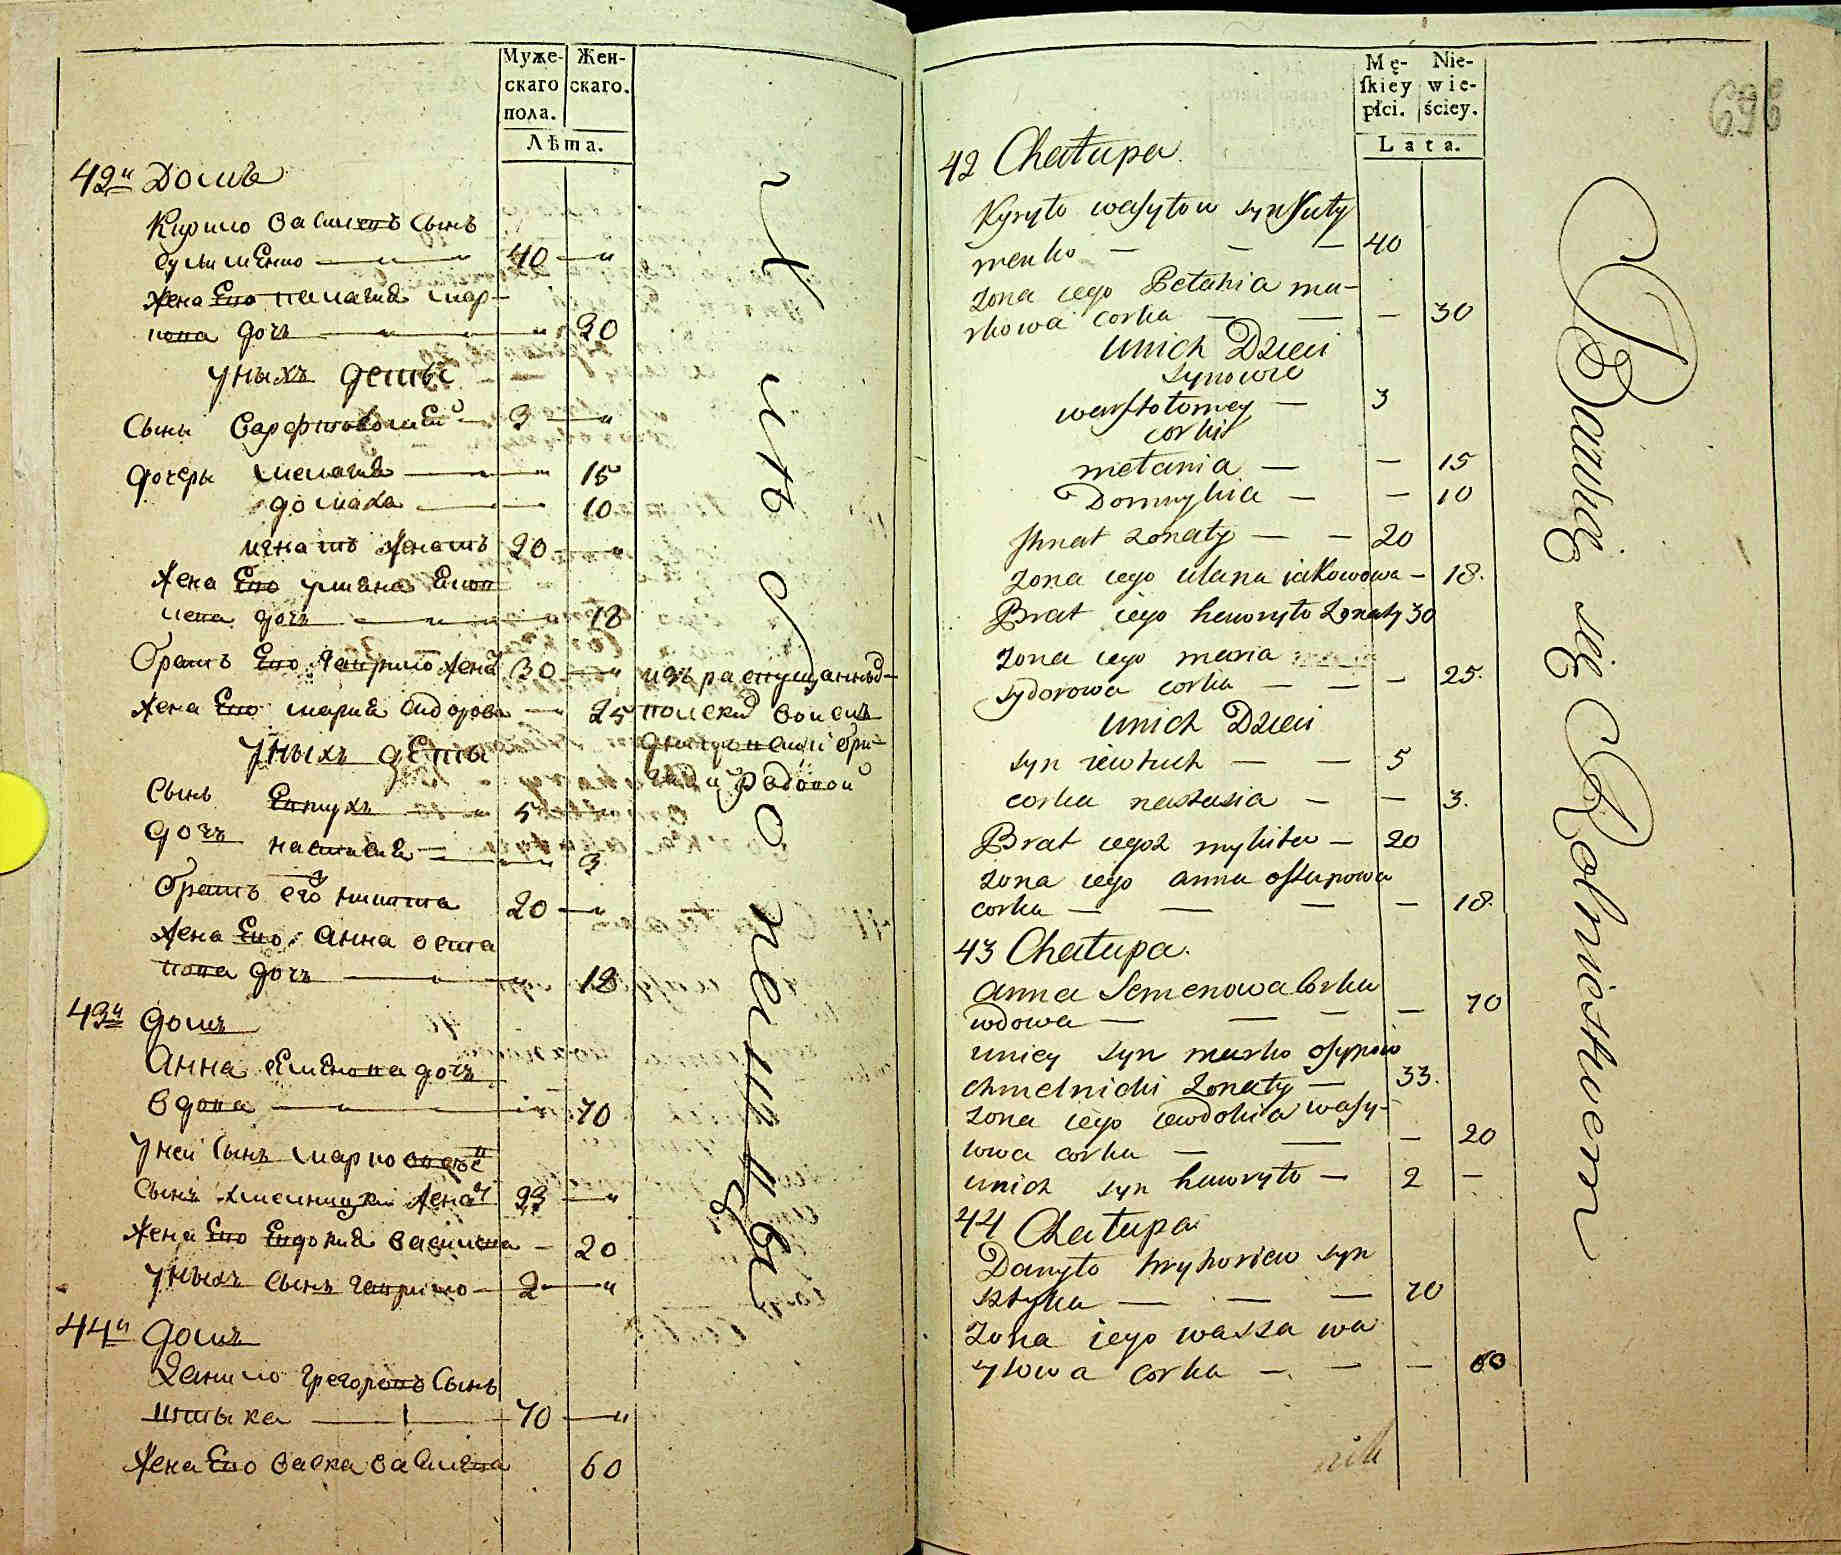 Муже-
скаго
пола.
Жен-
скаго.
Лѣта.
42й Домъ
Кирило Василевъ Сынъ
40 — "
жена Его пелагия мар-
кова дочь — " 30
Уныхъ дети
Сынъ Варфоломей — 3 — "
дочеры мелания — " 15
домаха — 10
игнатъ женатъ 20 — "
жена Его уляна Яков
лева дочь — " — 18
братъ Его Гаврило жена 30 — "
жена Его мария Сидорова — 25
Уныхъ дети
Сынъ Евтухъ — " 5
дочь настасия — " 3
братъ его никита 20 — "
жена Его анна оста
пова дочь — " 18
изъ распущанныхъ
полской войскъ
днепровской бри-
гады рядовой
Хлѣбопашцы
43й домъ
Анна Семенова дочь
вдова — " 70
Уней Сынъ Марко
Сынъ хмелницкий жена 33 — "
жена Его Евдокия василева — 20
Уныхъ Сынъ гаврило — 2 — "
44й домъ
Данило Григоровъ Сынъ
штыка — 70 — "
жена Его васка василева 60
Mę-
ſkiey
płci.
Nie-
wie-
ściey.
Lata.
696
42 Chałupa.
Kyryło wasylow syn
menko — — — 40
zona iego Pełahia ma-
rkowa corka — — — 30
unich Dzieci
synowie
warfłołomey — 3
corki
mełania — — 15
Domnykia — — 10
Jhnat zonaty — — 20
zona iego ulana iakowowa — 18.
Brat iego hawryło zonaty 30
zona iego maria
sydorowa corka — — — 25.
unich Dzieci
syn iewtuch — — 5
corka nastasia — — 3.
Brat iegoz mykita — 20
zona iego anna ostapowa
corka — — — — 18.
43 Chałupa.
anna Semenowa Corka
wdowa — — — — 70
uniey syn marko osypow
chmelnicki zonaty — 33.
zona iego iewdokia wasy-
lowa corka — — — 20
unich syn hawryło — 2 —
44 Chałupa
Danyło hryhoriew syn
sztyka — — — 70
zona iego waska wa
sylowa corka — — — 60
Bawią się Rolnictwem